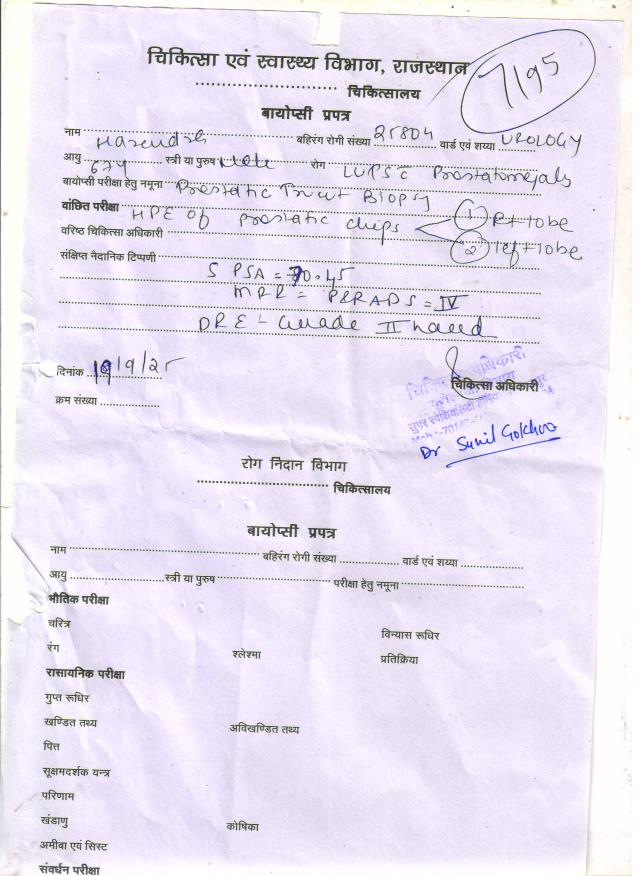 चिकित्सा एवं स्वास्थ्य विभाग, राजस्थान
7195
.......................... चिकित्सालय
बायोप्सी प्रपत्र
नाम ........ बहिरंग रोगी संख्या 25804 वार्ड एवं शय्या UROLOGY
आयु 67Y स्त्री या पुरुष Male रोग LUTS C Prostatomegaly
बायोप्सी परीक्षा हेतु नमूना Prostatic Trucut Biopsy
वांछित परीक्षा HPE of Prostatic chips ① Rt lobe
वरिष्ठ चिकित्सा अधिकारी ② left lobe
संक्षिप्त नैदानिक टिप्पणी
S PSA = 70.45
= PIRADS = IV
DRE - Grade II hard
दिनांक 19/9/25
चिकित्सा अधिकारी
क्रम संख्या ..................
Dr Sunil
रोग निदान विभाग
.......................... चिकित्सालय
बायोप्सी प्रपत्र
नाम .......................... बहिरंग रोगी संख्या .................. वार्ड एवं शय्या ..................
आयु .................. स्त्री या पुरुष .................. परीक्षा हेतु नमूना ..................
भौतिक परीक्षा
चरित्र विन्यास रूधिर
रंग श्लेश्मा प्रतिक्रिया
रासायनिक परीक्षा
गुप्त रूधिर
खण्डित तथ्य अविखण्डित तथ्य
पित्त
सूक्ष्मदर्शक यन्त्र
परिणाम
खंडाणु कोषिका
अमीबा एवं सिस्ट
संवर्धन परीक्षा